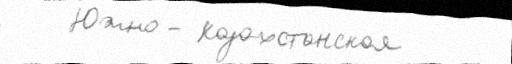 Южно - Казахстанская